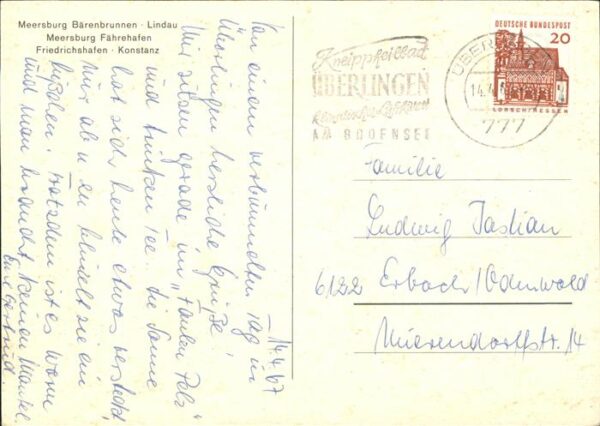 Meersburg Bärenbrunnen · Lindau
Meersburg Fährehafen
Friedrichshafen · Konstanz
14.4.67
Von einem verbummelten Tag in
Überlingen herzliche Grüße!
Wir sitzen gerade im „Faulen Pelz"
und trinken Tee. Die Sonne
hat sich heute etwas versteckt,
nur ab u. zu blinzelt sie ein
bißchen. Trotzdem ist es warm
und man braucht keinen Mantel.
Eure Gertrud.
Kneippheilbad
ÜBERLINGEN
AM BODENSEE
ÜBERL
14.4.
777
DEUTSCHE BUNDESPOST
20
LORSCH/HESSEN
Familie
Ludwig Jastian
6122 Erbach/Odenwald
Mierendorffstr. 14